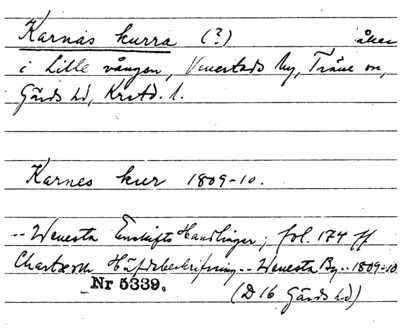 Karnas kurra (?) åker
i Lille vången, Venestads by, Träne sn,
Gärds hd, Krstd. l.
Karnes kur 1809-10.
-- Wenesta Enskifts Handlingar, fol. 174 ff
Häfdebeskrifning -- Wenesta By -- 1809-10
Nr 5339. (D 16 Gärds hd)